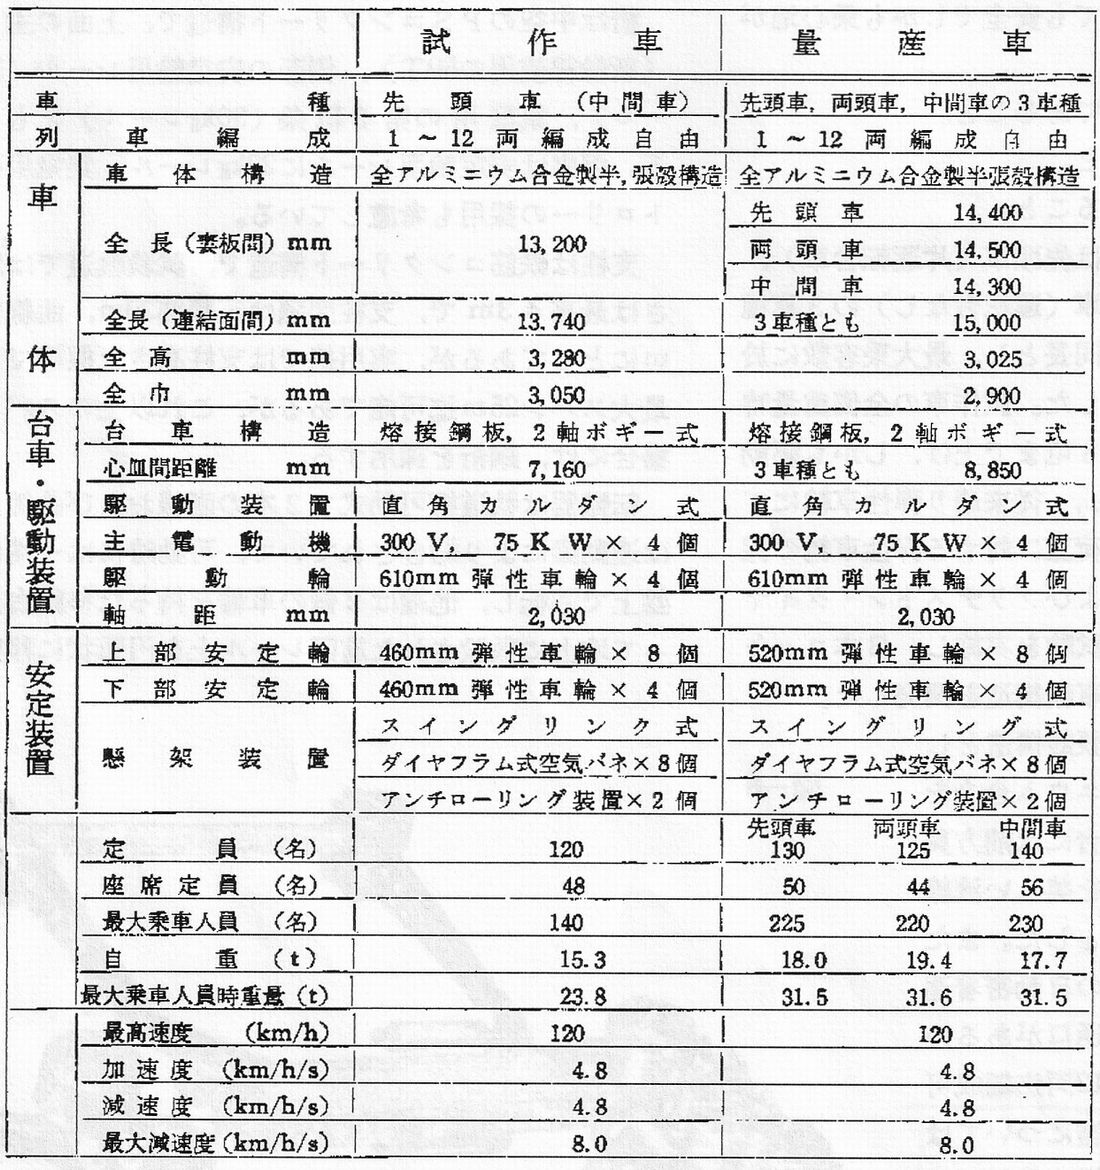 試作車 量産車
車種 先頭車（中間車） 先頭車，両頭車，中間車の3車種
列車編成 1～12両編成自由 1～12両編成自由
車体
車体構造 全アルミニウム合金製半，張殻構造 全アルミニウム合金製半張殻構造
全長（妻板間）mm 13,200 先頭車 14,400
両頭車 14,500
中間車 14,300
全長（連結面間）mm 13.740 3車種とも 15,000
全高 mm 3,280 3,025
全巾 mm 3,050 2,900
台車・駆動装置
台車構造 熔接鋼板，2軸ボギー式 熔接鋼板，2軸ボギー式
心皿間距離 mm 7,160 3車種とも 8,850
駆動装置 直角カルダン式 直角カルダン式
主電動機 300V， 75KW×4個 300V， 75KW×4個
駆動輪 610mm弾性車輪×4個 610mm弾性車輪×4個
軸距 mm 2,030 2,030
安定装置
上部安定輪 460mm弾性車輪×8個 520mm弾性車輪×8個
下部安定輪 460mm弾性車輪×4個 520mm弾性車輪×4個
懸架装置 スイングリンク式 スイングリング式
ダイヤフラム式空気バネ×8個 ダイヤフラム式空気バネ×8個
アンチローリング装置×2個 アンチローリング装置×2個
先頭車 両頭車 中間車
定員（名） 120 130 125 140
座席定員（名） 48 50 44 56
最大乗車人員（名） 140 225 220 230
自重（t） 15.3 18.0 19.4 17.7
最大乗車人員時重量（t） 23.8 31.5 31.6 31.5
最高速度 (km/h) 120 120
加速度 (km/h/s) 4.8 4.8
減速度 (km/h/s) 4.8 4.8
最大減速度(km/h/s) 8.0 8.0